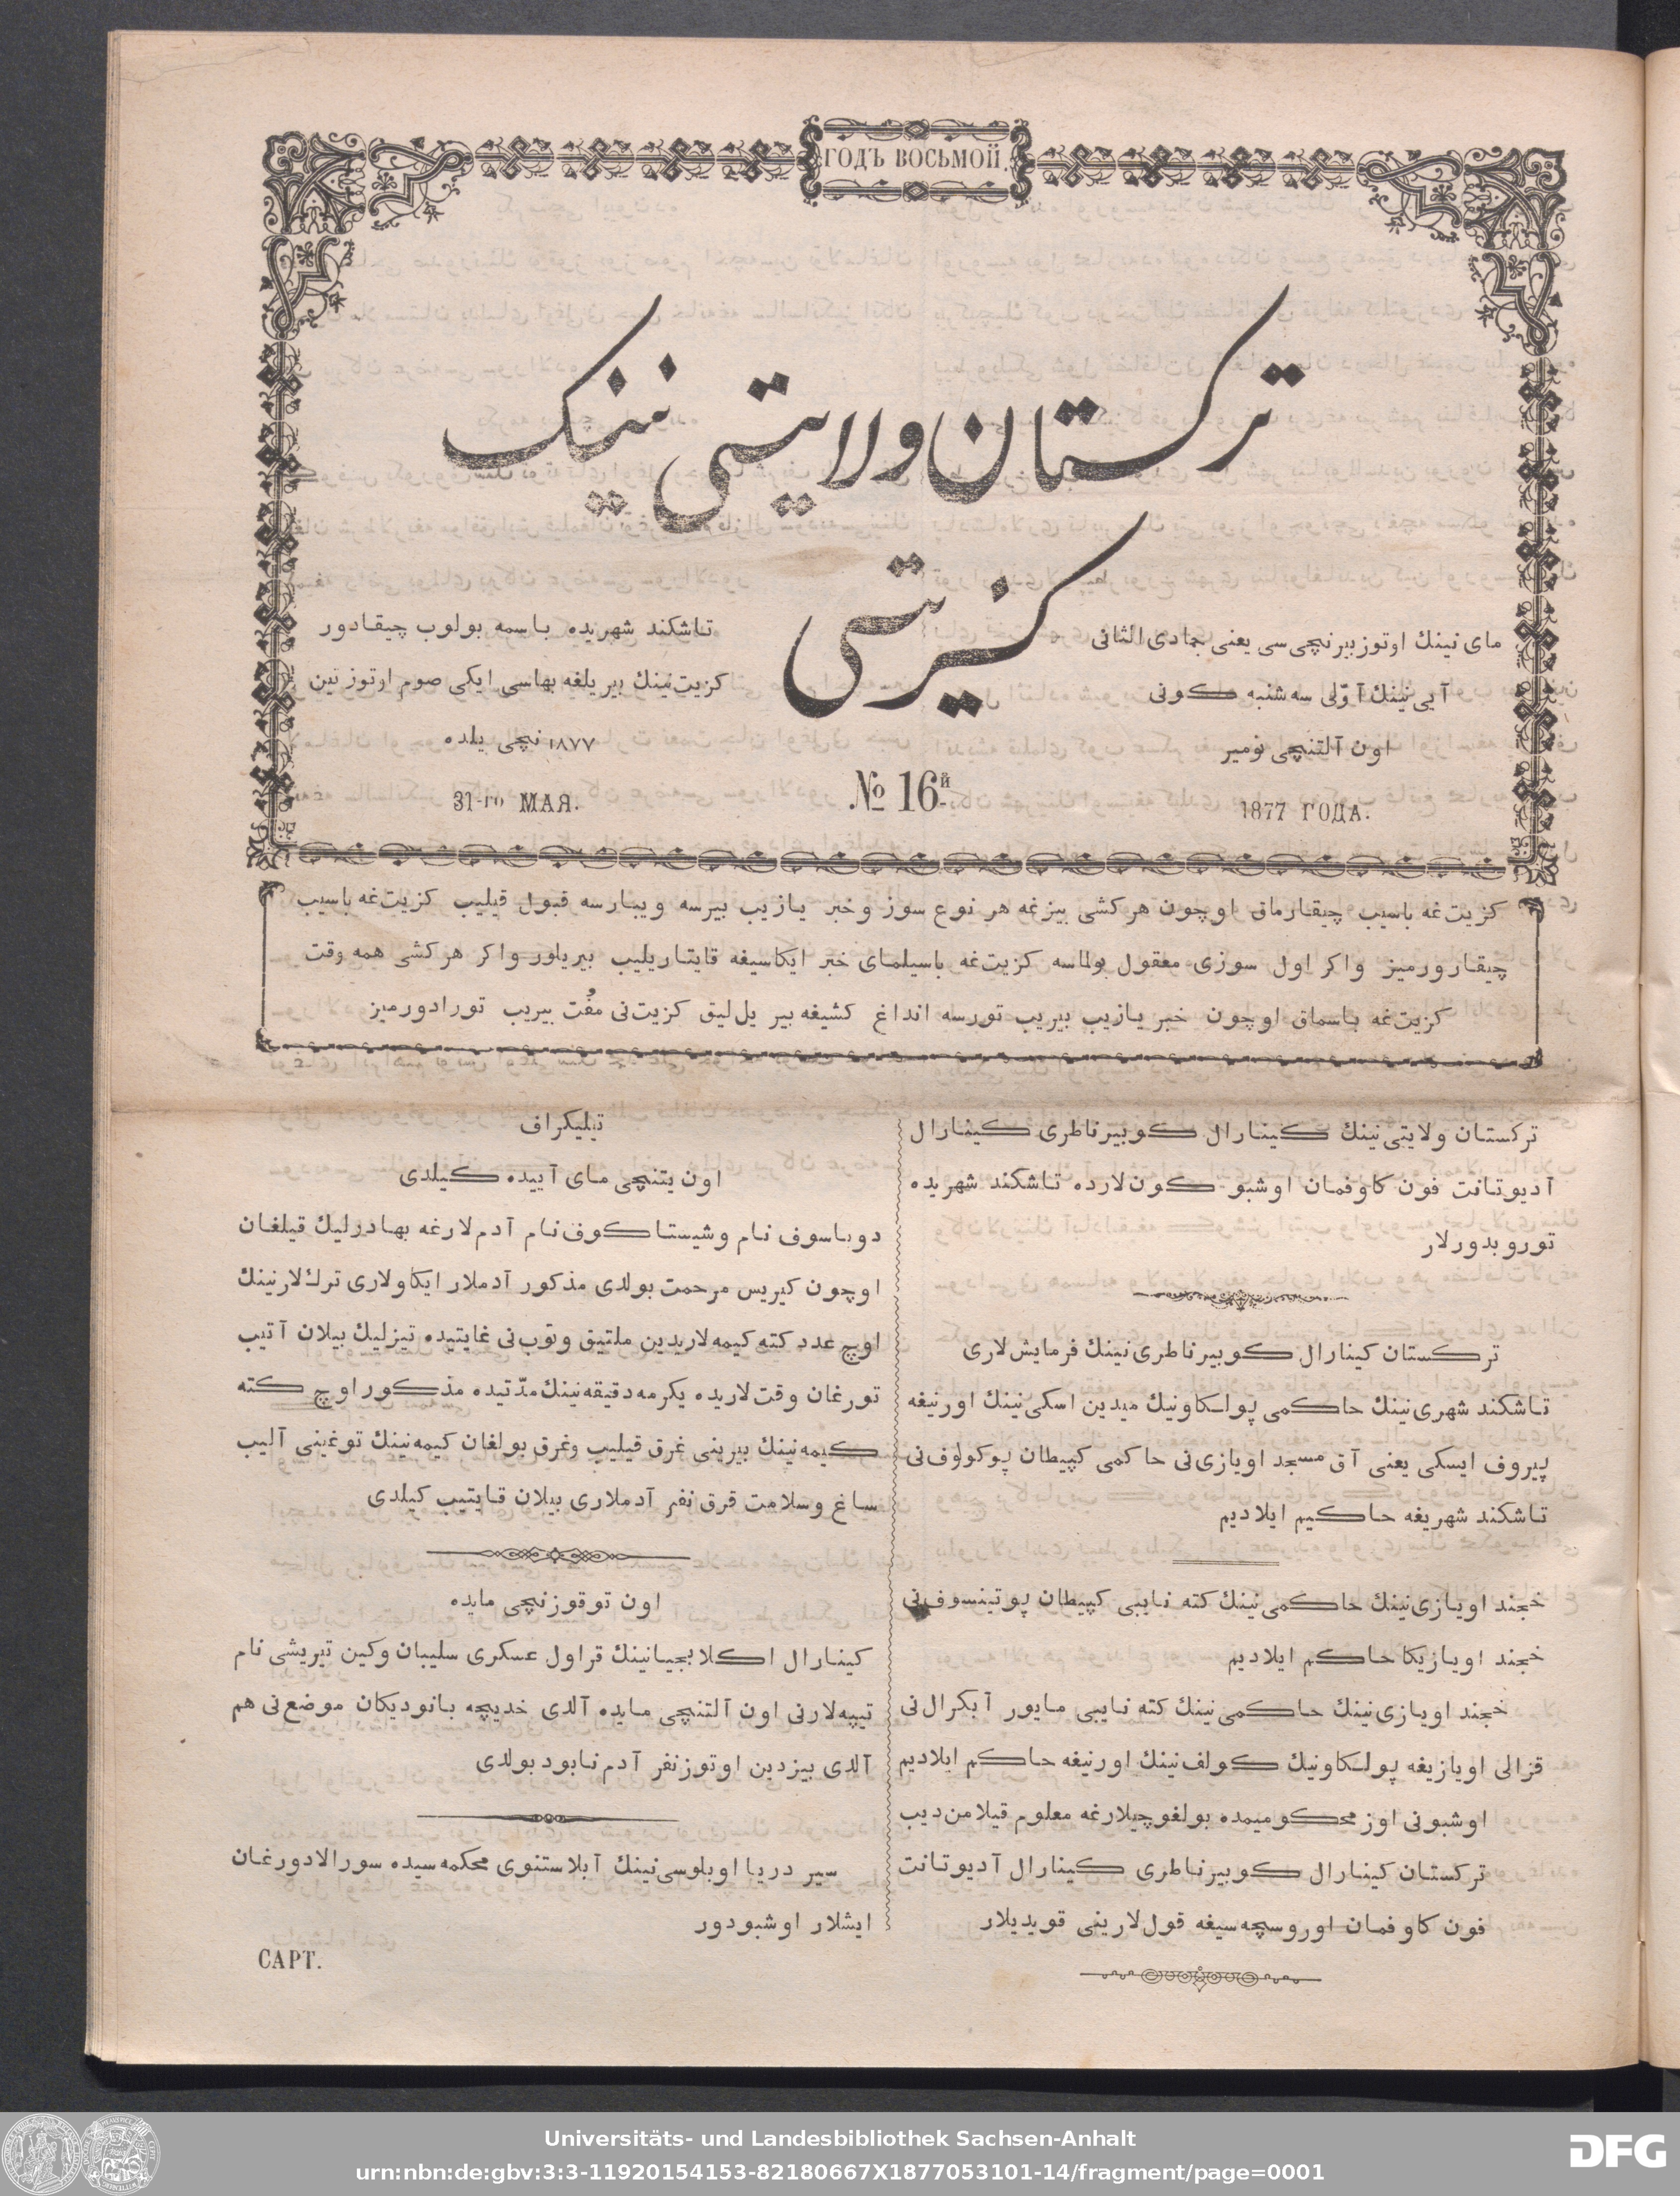 ГОДЪ ВОСЬМОЙ.
ترکستان ولایتی نینک
کزیتی
مای نینك اوتوز بیرنچی سی یعنی جمادی الثانی
آیی نینك آوّلی سه شنبه کونی
اون آلتنچی نومیر
1877 ГОДА.
تاشکند شهریده باسمه بولوب چیقادور
کزیت نینك بیر یلغه بهاسی ایکی صوم اوتوز تین
١٨٧٧ نچی یلده
31-го МАЯ.
№ 16й
کزیت غه باسیب چیقارماق اوچون هر کشی بیزغه هر نوع سوز و خبر یازیب بیرسه ویبارسه قبول قیلیب کزیت غه باسیب
چیقارورمیز واکر اول سوزی معقول بولماسه کزیت غه باسیلمای خبر ایکاسیغه قایتاریلیب بیریلور واکر هر کشی همه وقت
کزیت غه باسماق اوچون خبر یازیب بیریب تورسه انداغ کشیغه بیر یل لیق کزیت نی مفُت بیریب تورادورمیز
ترکستان ولایتی نینك کینارال کوبیرناطری کینارال
آدیوتانت فون کاوفمان اوشبو کون لارده تاشکند شهریده
توروبدورلار
ترکستان کینارال کوبیرناطری نینك فرمایش لاری
تاشکند شهری نینك حاکمی پولکاونیك میدین اسکی نینك اورنیغه
پیروف ایسکی یعنی آق مسجد اویازی نی حاکمی کپیطان پوکولوف نی
تاشکند شهریغه حاکیم ایلادیم
خجند اویازی نینك حاکمی نینك کته نایبی کپیطان پوتینسوف نی
خجند اویازیکا حاکم ایلادیم
خجند اویازی نینك حاکمی نینك کته نایبی مایور آبکرال نی
قزالی اویازیغه پولکاونیك کولف نینك اورنیغه حاکم ایلادیم
اوشبونی اوز محکومیمده بولغوچیلارغه معلوم قیلامن دیب
ترکستان کینارال کوبیرناطری کینارال آدیوتانت
فون کاوفمان اوروسچه سیغه قول لارینی قویدیلار
تیلیکراف
اون یتنچی مای آییده کیلدی
دوباسوف نام وشیستاکوف نام آدم لارغه بهادرلیك قیلغان
اوچون کیریس مرحمت بولدی مذکور آدملار ایکاولاری ترك لارنینك
اوچ عدد کته کیمه لاریدین ملتیق وتوب نی غایتیده تیزلیك بیلان آتیب
تورغان وقت لاریده یکرمه دقیقه نینك مدّتیده مذکور اوچ کته
کیمه نینك بیرینی غرق قیلیب وغرق بولغان کیمه نینك توغینی آلیب
ساغ وسلامت قرق نفر آدملاری بیلان قایتیب کیلدی
اون توقوزنچی مایده
کینارال اکلابجیانینك قراول عسکری سلیبان وکین تیریشی نام
تیپه لارنی اون آلتنچی مایده آلدی خدیچه بانودیکان موضع نی هم
آلدی بیزدین اوتوز نفر آدم نابود بولدی
سیر دریا اوبلوسی نینك آبلاستنوی محکمه سیده سورالادورغان
ایشلار اوشبودور
САРТ.
Universitäts- und Landesbibliothek Sachsen-Anhalt
urn:nbn:de:gbv:3:3-11920154153-82180667X1877053101-14/fragment/page=0001
DFG